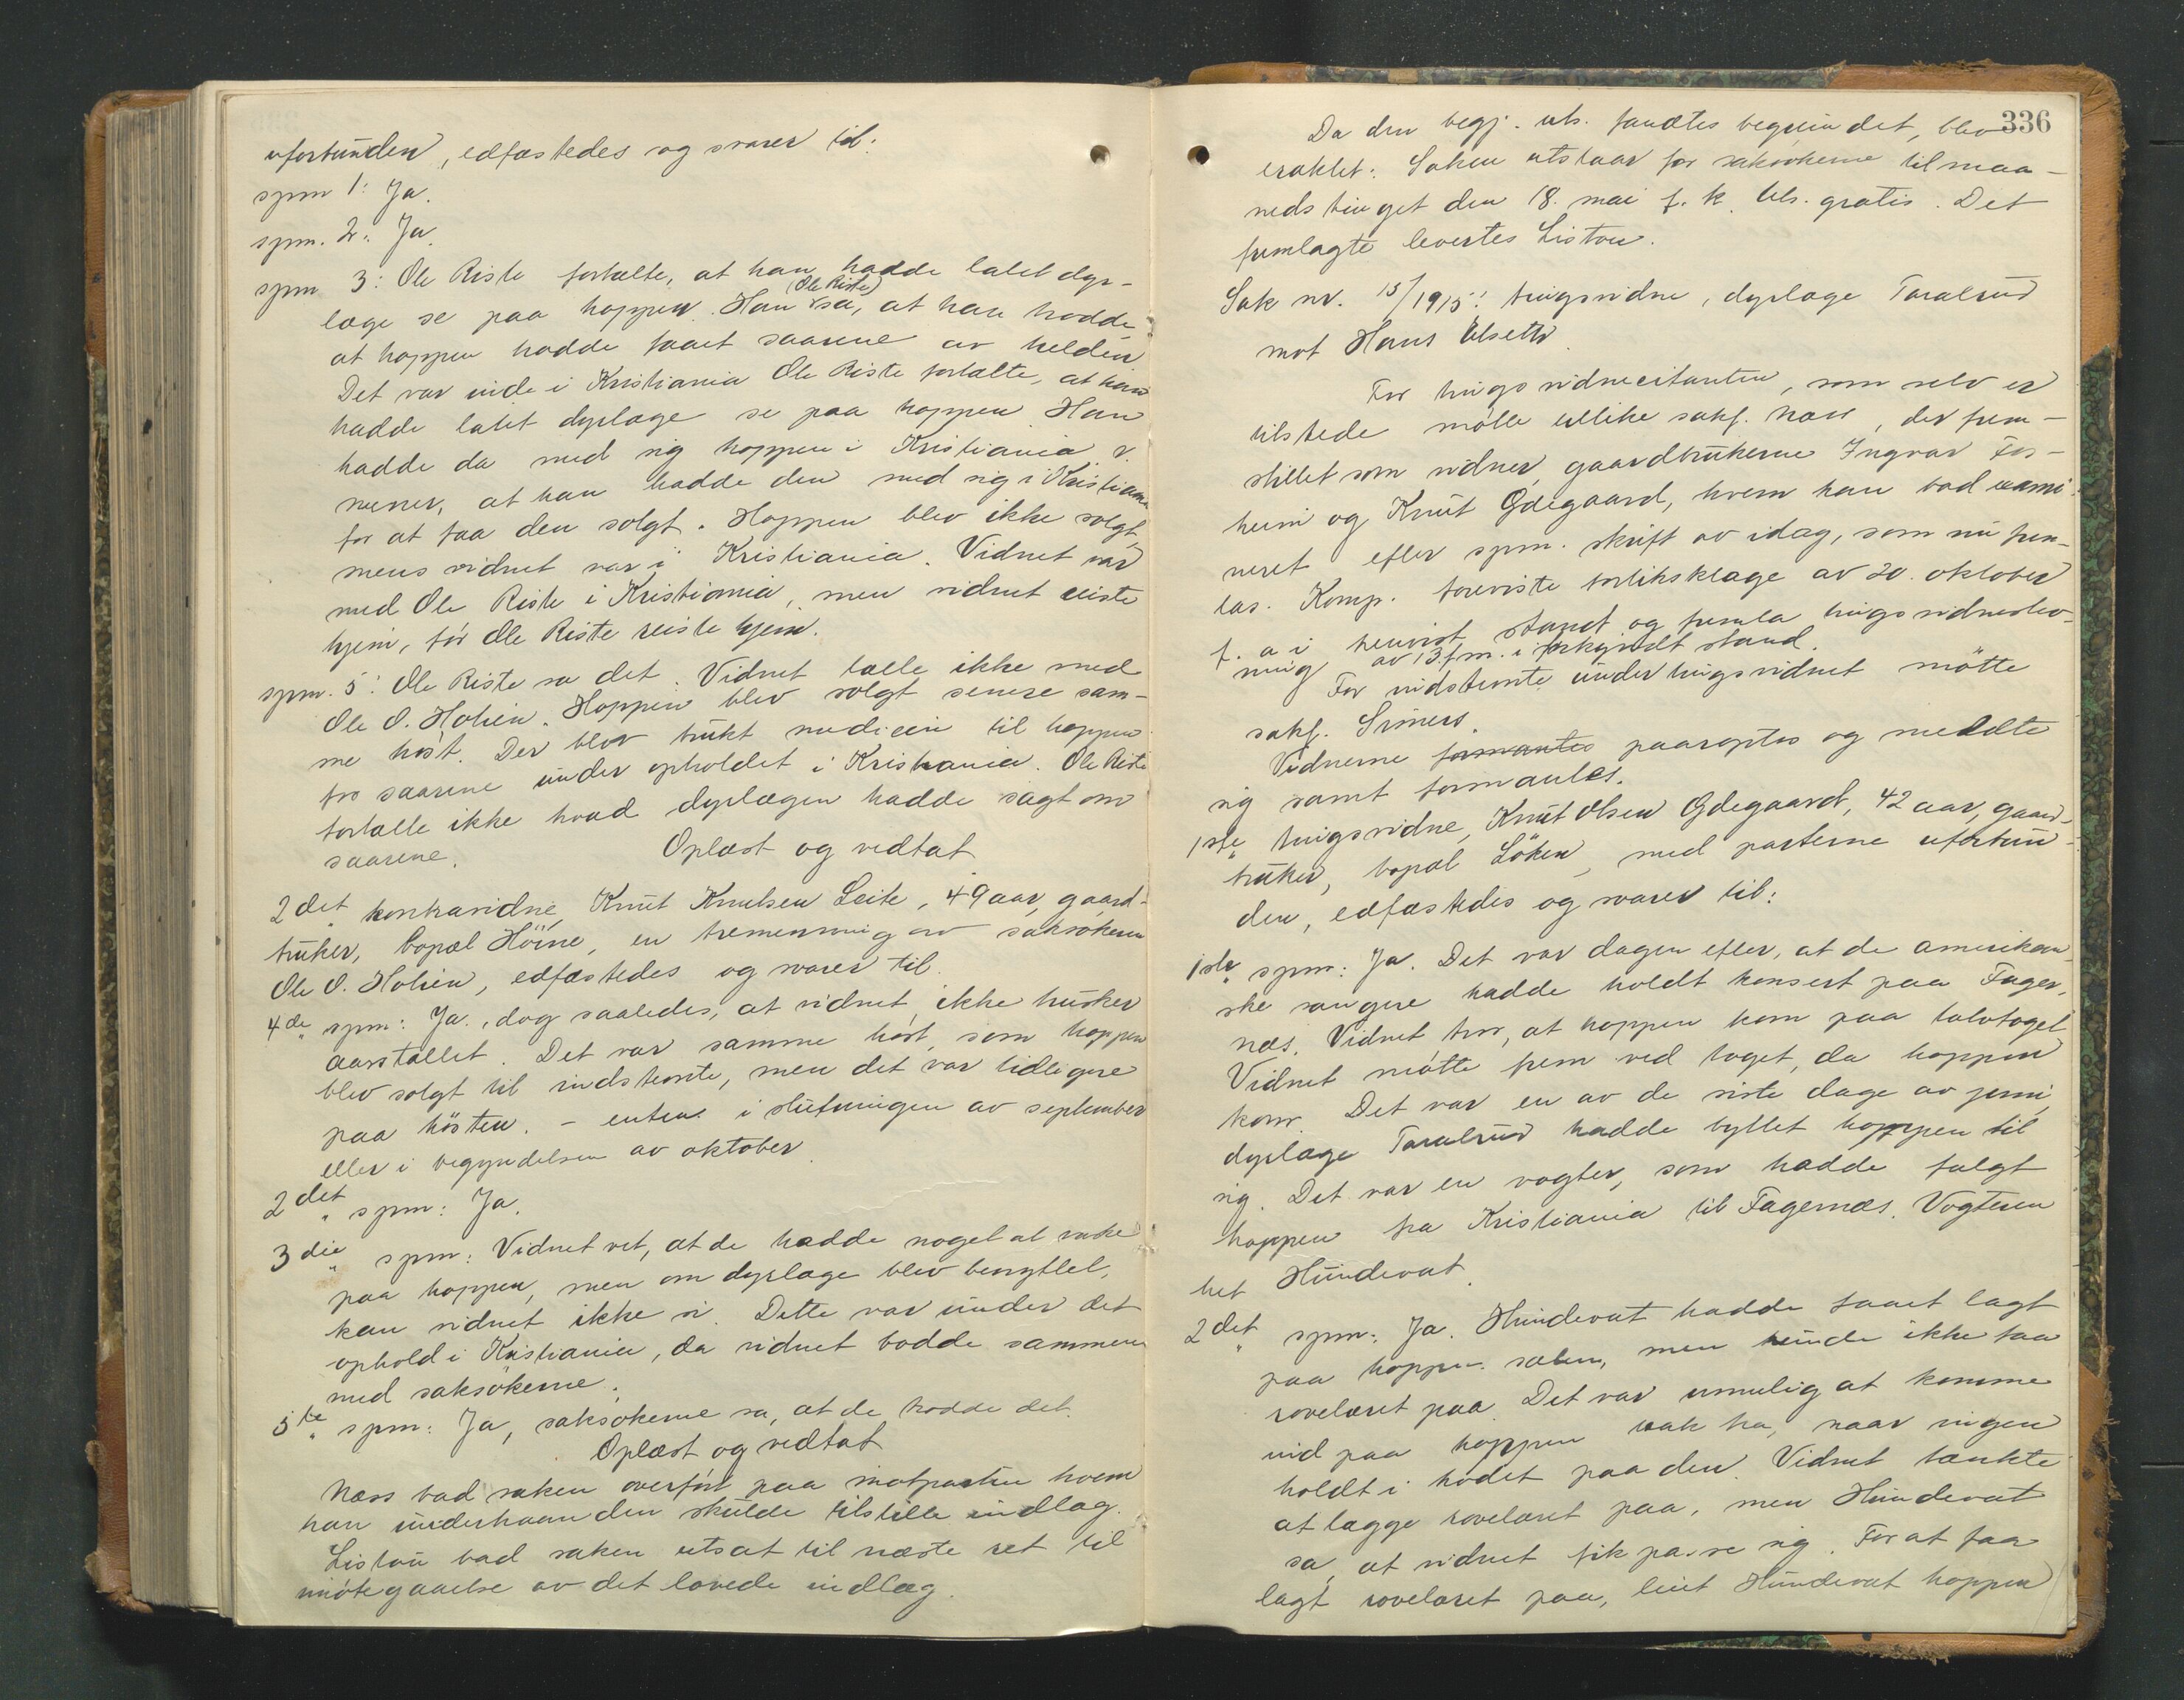 uforbunden, edfæstedes og svarer til:
spm 1: Ja.
spm. 2: Ja.
spm 3: Ole Riste fortalte, at han hadde latet dyr-
læge se paa hoppen. Han (Ole Riste) sa, at han hadde
at hoppen hadde faaet saarene av helden
Det var inde i Kristiania Ole Riste fortalte, at han
hadde latet dyrlæge se paa hoppen. Han
hadde da med sig hoppen i Kristiania. V.
mener, at han hadde den med sig i Kristiania
for at faa den solgt. Hoppen blev ikke solgt,
mens vidnet var i Kristiania. Vidnet var
med Ole Riste i Kristiania, men vidnet reiste
hjem, før Ole Riste reiste hjem.
spm. 5: Ole Riste sa det. Vidnet talte ikke med
Ole O. Holien. Hoppen blev solgt senere sam-
me høst. Der blev brukt medicin til hoppen
for saarene under opholdet i Kristiania. Ole Riste
fortalte ikke hvad dyrlægen hadde sagt om
saarene. Oplæst og vedtat
2det kontravidne, Knut Knutsen Leite, 49 aar, gaard-
bruker, bopæl Høine, en tremenning av saksøkeren
Ole O. Holien, edfæstedes og svarer til.
4de spm: Ja., dog saaledes, at vidnet ikke husker
aarstallet. Det var samme høst, som hoppen
blev solgt til indstevnte, men det var tidligere
paa høsten. - enten i slutningen av september
eller i begyndelsen av oktober.
2det spm: Ja.
3die spm: Vidnet vet, at de hadde noget at røke
paa hoppen, men om dyrlæge blev benyttet,
kan vidnet ikke si. Dette var under det
ophold i Kristiania, da vidnet bodde sammen
med saksøkerne.
5te spm: Ja, saksøkerne sa, at de hadde det.
Oplæst og vedtat
Næss bad saken overført paa motparten hvem
han underhaanden skulde tilstille indlæg.
Listou bad saken utsat til næste ret til
imøtegaaelse av det lovede indlæg.
336
Da den begj. uts. fandtes begrundet, blev
eraktet: Saken utstaar for saksøkerne til maa-
nedstinget den 18. mai f. k. Uts. gratis. Det
fremlagte levertes Listou.
Sak nr. 15/1915: tingsvidne, dyrlæge Taralrud
mot Hans Ulseth.
For tingsvidnecitanten, som selv er
tilstede møtte likesaa sakf. Næss, der frem-
stillet som vidner gaardbrukerne Ingvar Fos-
heim og Knut Ødegaard, hvem han bad exami-
neret efter spm. skrift av idag, som nu frem-
las. Komp. foreviste forliksklage av 20. oktober
f. a i henvist stand og fremla tingsvidnestev-
ning av 13 f. m. i forkyndt stand.
For indstevnte under tingsvidnet møtte
sakf. Simers.
Vidnerne formantes paaroptes og meldte
sig samt formantes.
1ste tingsvidne, Knut Olsen Ødegaard, 42 aar, gaard-
bruker, bopæl Løken, med parterne uforbun-
den, edfæstedes og svarer til:
1ste spm: Ja. Det var dagen efter, at de amerikan-
ske sangere hadde holdt konsert paa Fager-
næs. Vidnet tror, at hoppen kom paa tolvtoget
Vidnet møtte frem ved toget, da hoppen
kom. Det var en av de siste dage av juni,
dyrlæge Taralrud hadde byttet hoppen til
sig. Det var en vogter, som hadde fulgt
hoppen fra Kristiania til Fagernæs. Vogteren
het Hundevat.
2det spm: Ja. Hundevat hadde faaet lagt
paa hoppen sælen, men kunde ikke faa
rovelæret paa. Det var umulig at komme
ind paa hoppen bakfra, naar ingen
holdt i hodet paa den. Vidnet tænkte
at lægge rovelæret paa, men Hundevat
sa, at vidnet fik passe sig. For at faa
lagt rovelæret paa, leiet Hundevat hoppen